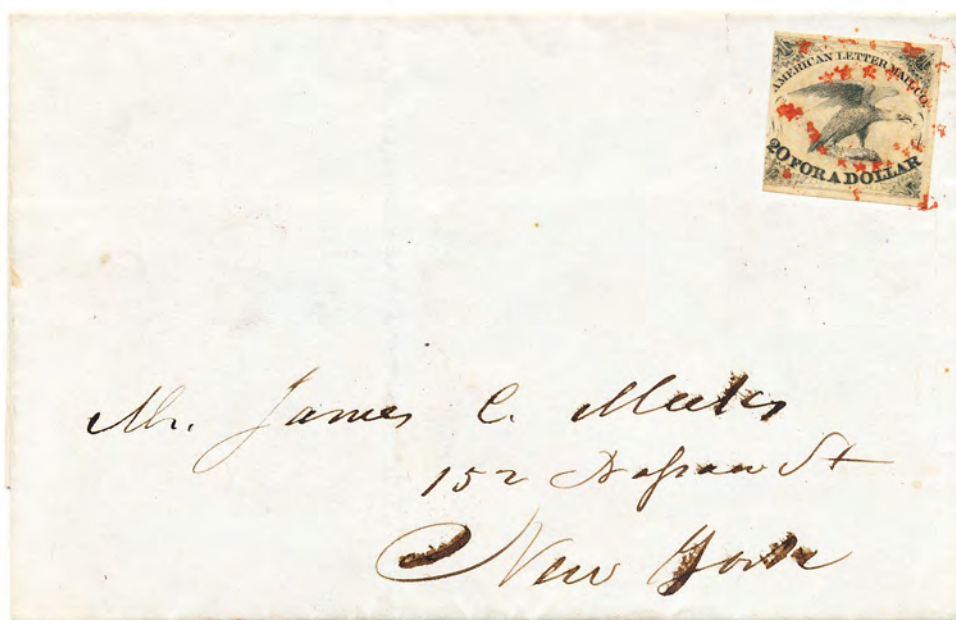 AMERICAN LETTER MAIL CO.
20 FOR A DOLLAR
Mr. James C. Meeks
152 Nassau St
New York